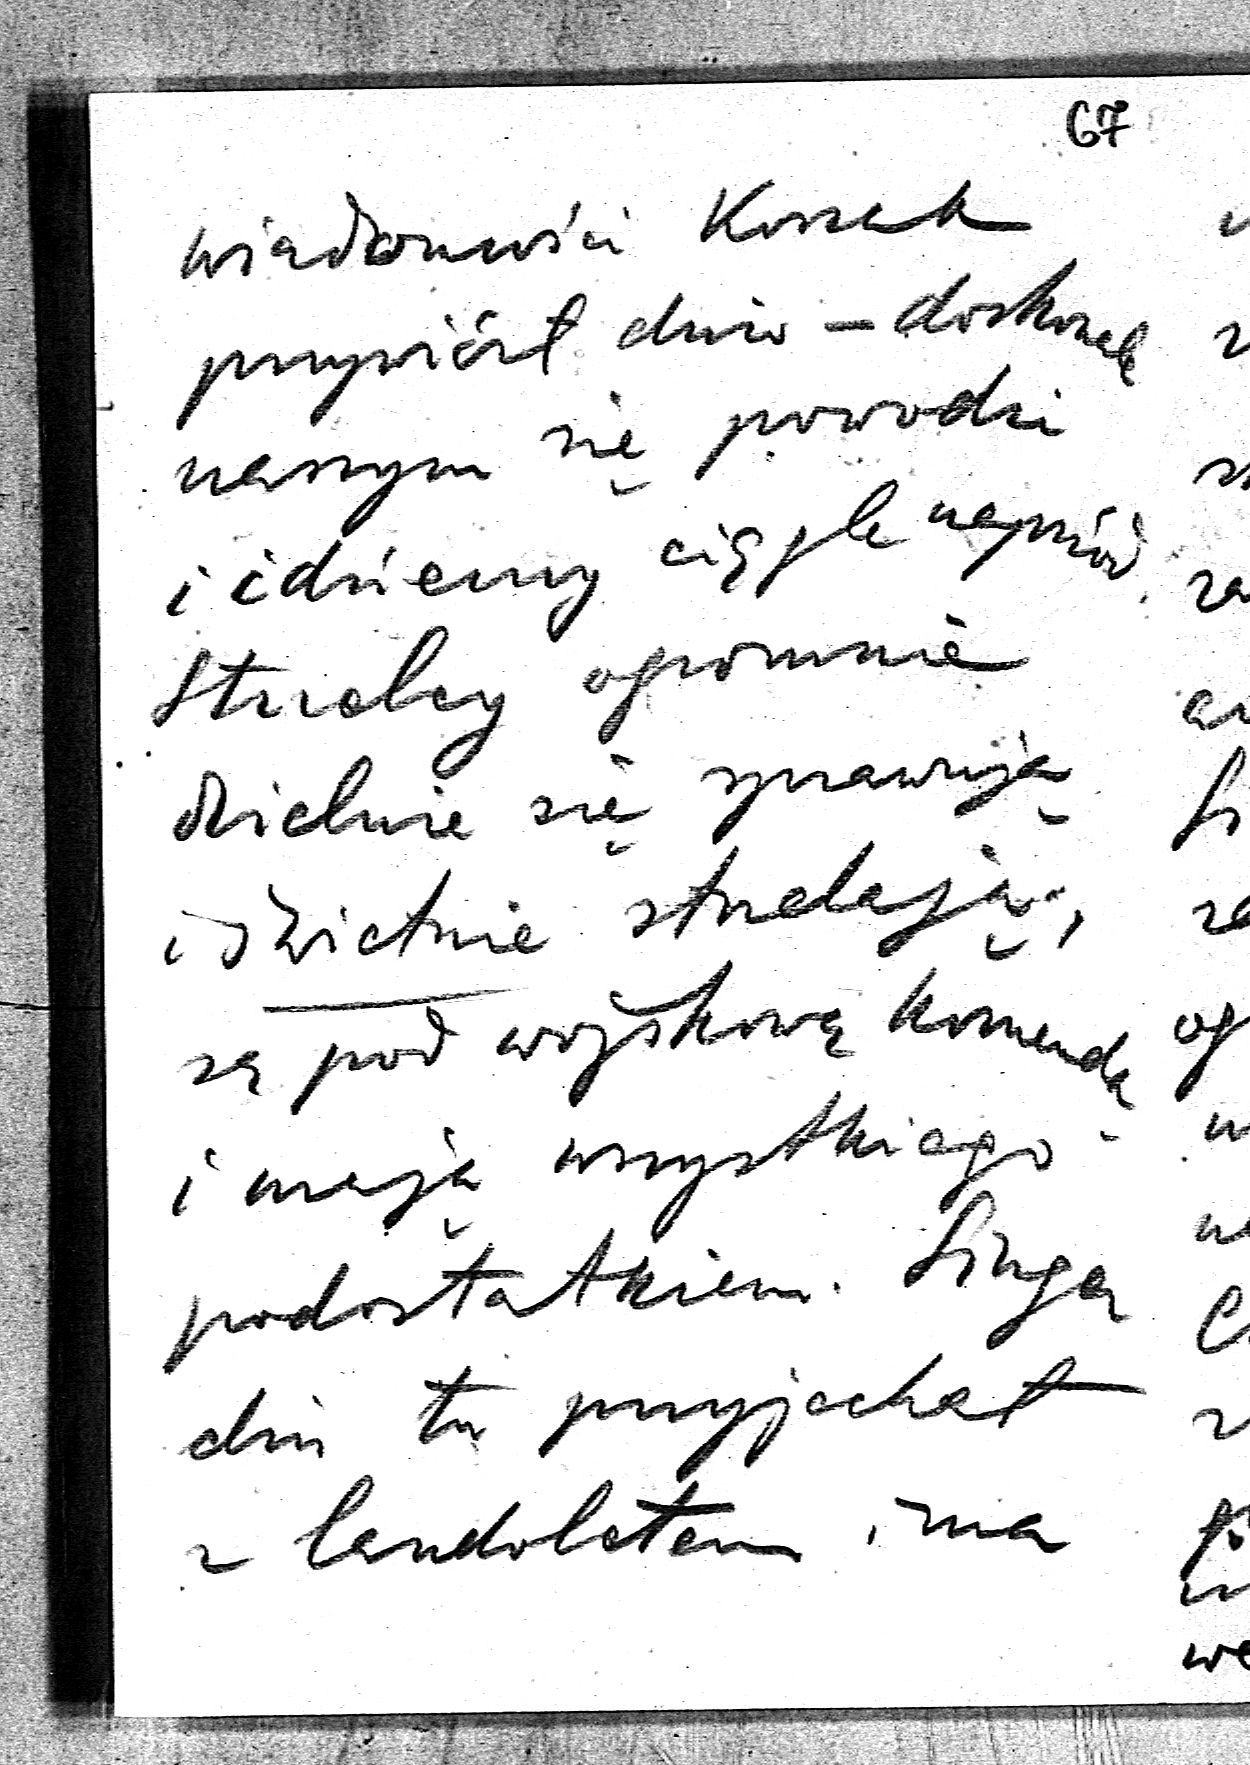 67
wiadomości Kossak
przywiózł dziś – doskonale
naszym się powodzi
i idziemy ciągle naprzód.
Strzelcy ogromnie
dzielnie się sprawują
i świetnie strzelają,
są pod wojskową komendą
i mają wszystkiego
podostatkiem. Sługa
dziś tu przyjechał
z landoletem i ma